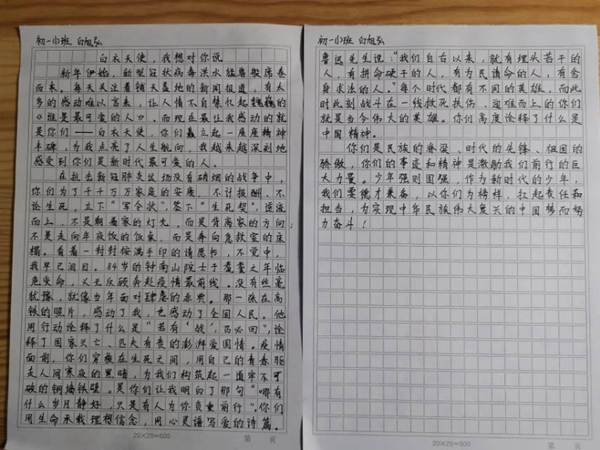 初一小班 白旭弘
白衣天使，我想对你说
新年伊始，新型冠状病毒洪水猛兽般席卷
而来。每天关注着铺天盖地的新闻报道，有太
多的感动难以言表，让人情不自禁忆起魏巍的
《谁是最可爱的人》，而现在最让我感动的就
是你们——白衣天使，你们矗立起一座座精神
丰碑，为我点亮了人生航向，我越来越深刻地
感受到你们是新时代最可爱的人。
在抗击新冠肺炎这场没有硝烟的战争中，
你们为了千千万万家庭的安康，不计报酬、不
论生死，立下“军令状”，签下“生死契”，逆流
而上，不是朝着家的灯光，而是背离家的方向
不是走向年夜饭的饭桌，而是奔向急救室的床
榻。看着一封封按满手印的请愿书，不觉中，
我早已泪目。84岁的钟南山院士于耄耋之年临
危受命，义无反顾奔赴疫情最前线，没有丝毫
犹豫，就像当年面对肆虐的非典。那一张在高
铁的照片，感动了我，也感动了全国人民。他
用行动诠释了什么是“若有‘战’，召必回”，诠
释了国家兴亡、匹夫有责的澎湃爱国情。疫情
面前，你们穿梭在生死之间，用自己的青春驱
走人间寒夜的黑暗，为我们构筑起一道牢不可
破的铜墙铁壁。是你们让我明白了那句“哪有
什么岁月静好，只是有人为你负重前行”。你们
用生命承载理想信念，用心灵谱写爱的诗篇。
20×25=500
第 页
初一小班 白旭弘
鲁迅先生说：“我们自古以来，就有埋头苦干的
人，有拼命硬干的人，有为民请命的人，有舍
身求法的人。”每个时代都有不同的英雄，而此
时此刻战斗在一线救死扶伤、迎难而上的你们
就是当今伟大的英雄。你们高度诠释了什么是
中国精神。
你们是民族的脊梁、时代的先锋、祖国的
骄傲，你们的事迹和精神是激励我们前行的巨
大力量。少年强则国强，作为新时代的少年，
我们要德才兼备，以你们为榜样，扛起责任和
担当，为实现中华民族伟大复兴的中国梦而努
力奋斗！
20×25=500
第 页